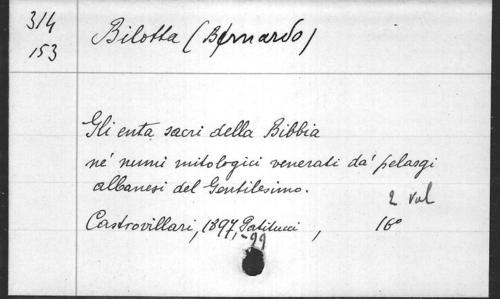 314
153
Bilotta (Bernardo)
Gli enta sacri della Bibbia
né numi mitologici venerati da' pelasgi
albanesi del Gentilesimo.
2 vol
Castrovillari, 1897, Patitucci, 16°
-99